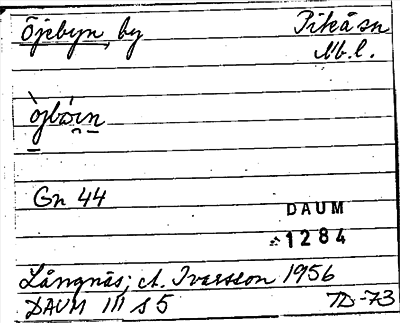 Öjebyn, by Piteå sn
Nb. l.
öjbörn
Gn 44
DAUM
1284
Långnäs; ct. Ivarsson 1956
DAUM III s 5 TD-73